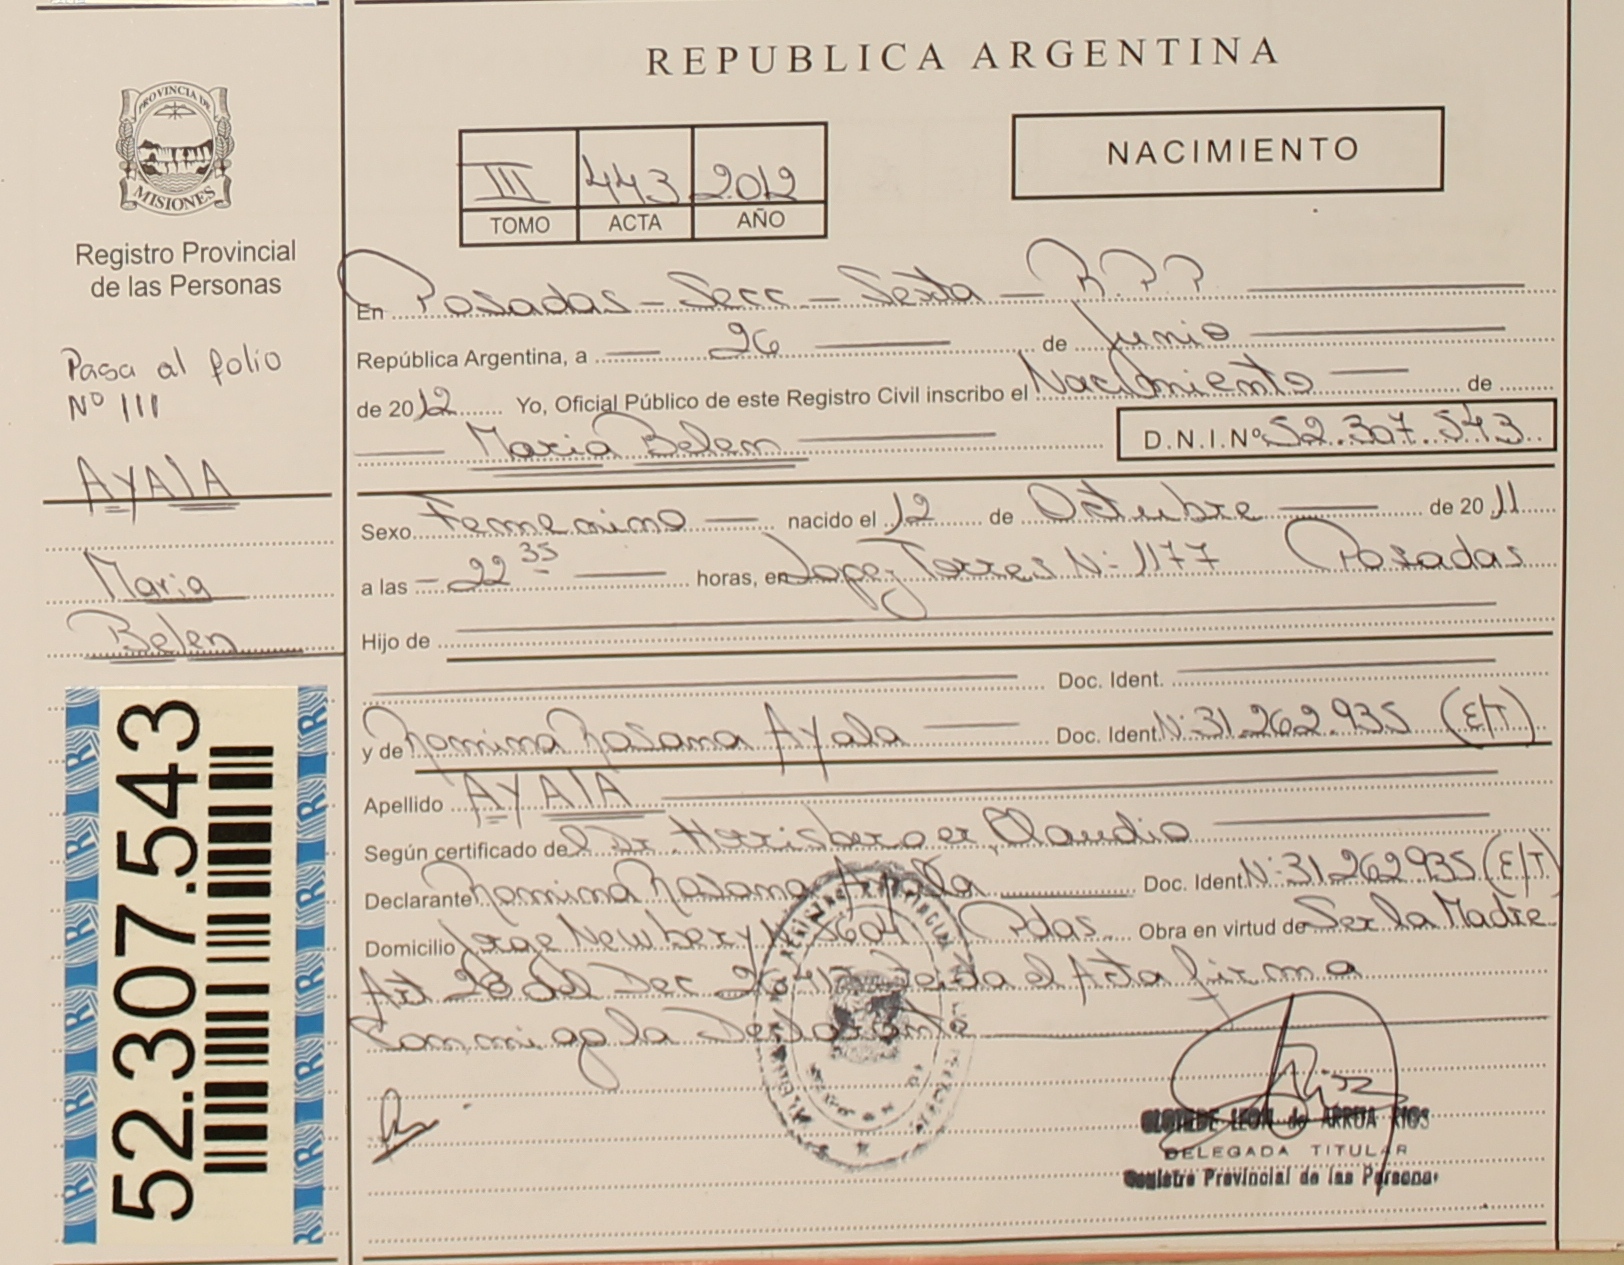 REPUBLICA ARGENTINA
PROVINCIA DE
MISIONES
Registro Provincial
de las Personas
Pasa al folio
Nº 111
AYALA
Maria
Belen
52.307.543
NACIMIENTO
III 443 2012
TOMO ACTA AÑO
En Posadas - Secc - Sexta - R.P.P
República Argentina, a 26 de Junio
de 2012 Yo, Oficial Público de este Registro Civil inscribo el Nacimiento de
Maria Belem D.N.I.Nº 52.307.543
Sexo Femenino nacido el 12 de Octubre de 2011
a las 22 35 horas, en Lopez Torres Nº 1177 Posadas
Hijo de
Doc. Ident.
y de Romina Rosana Ayala Doc. Ident. Nº 31.262.935 (E/T)
Apellido AYALA
Según certificado del Dr. Claudio
Declarante Romina Rosana Ayala Doc. Ident. Nº 31.262.935 (E/T)
Domicilio Jorge Newbery Nº Pdas. Obra en virtud de Ser la Madre
Art 28 del Dec el Acta firma
conmigo la Declarante
CLOTILDE LEON de ARRUA RIOS
DELEGADA TITULAR
Registro Provincial de las Personas